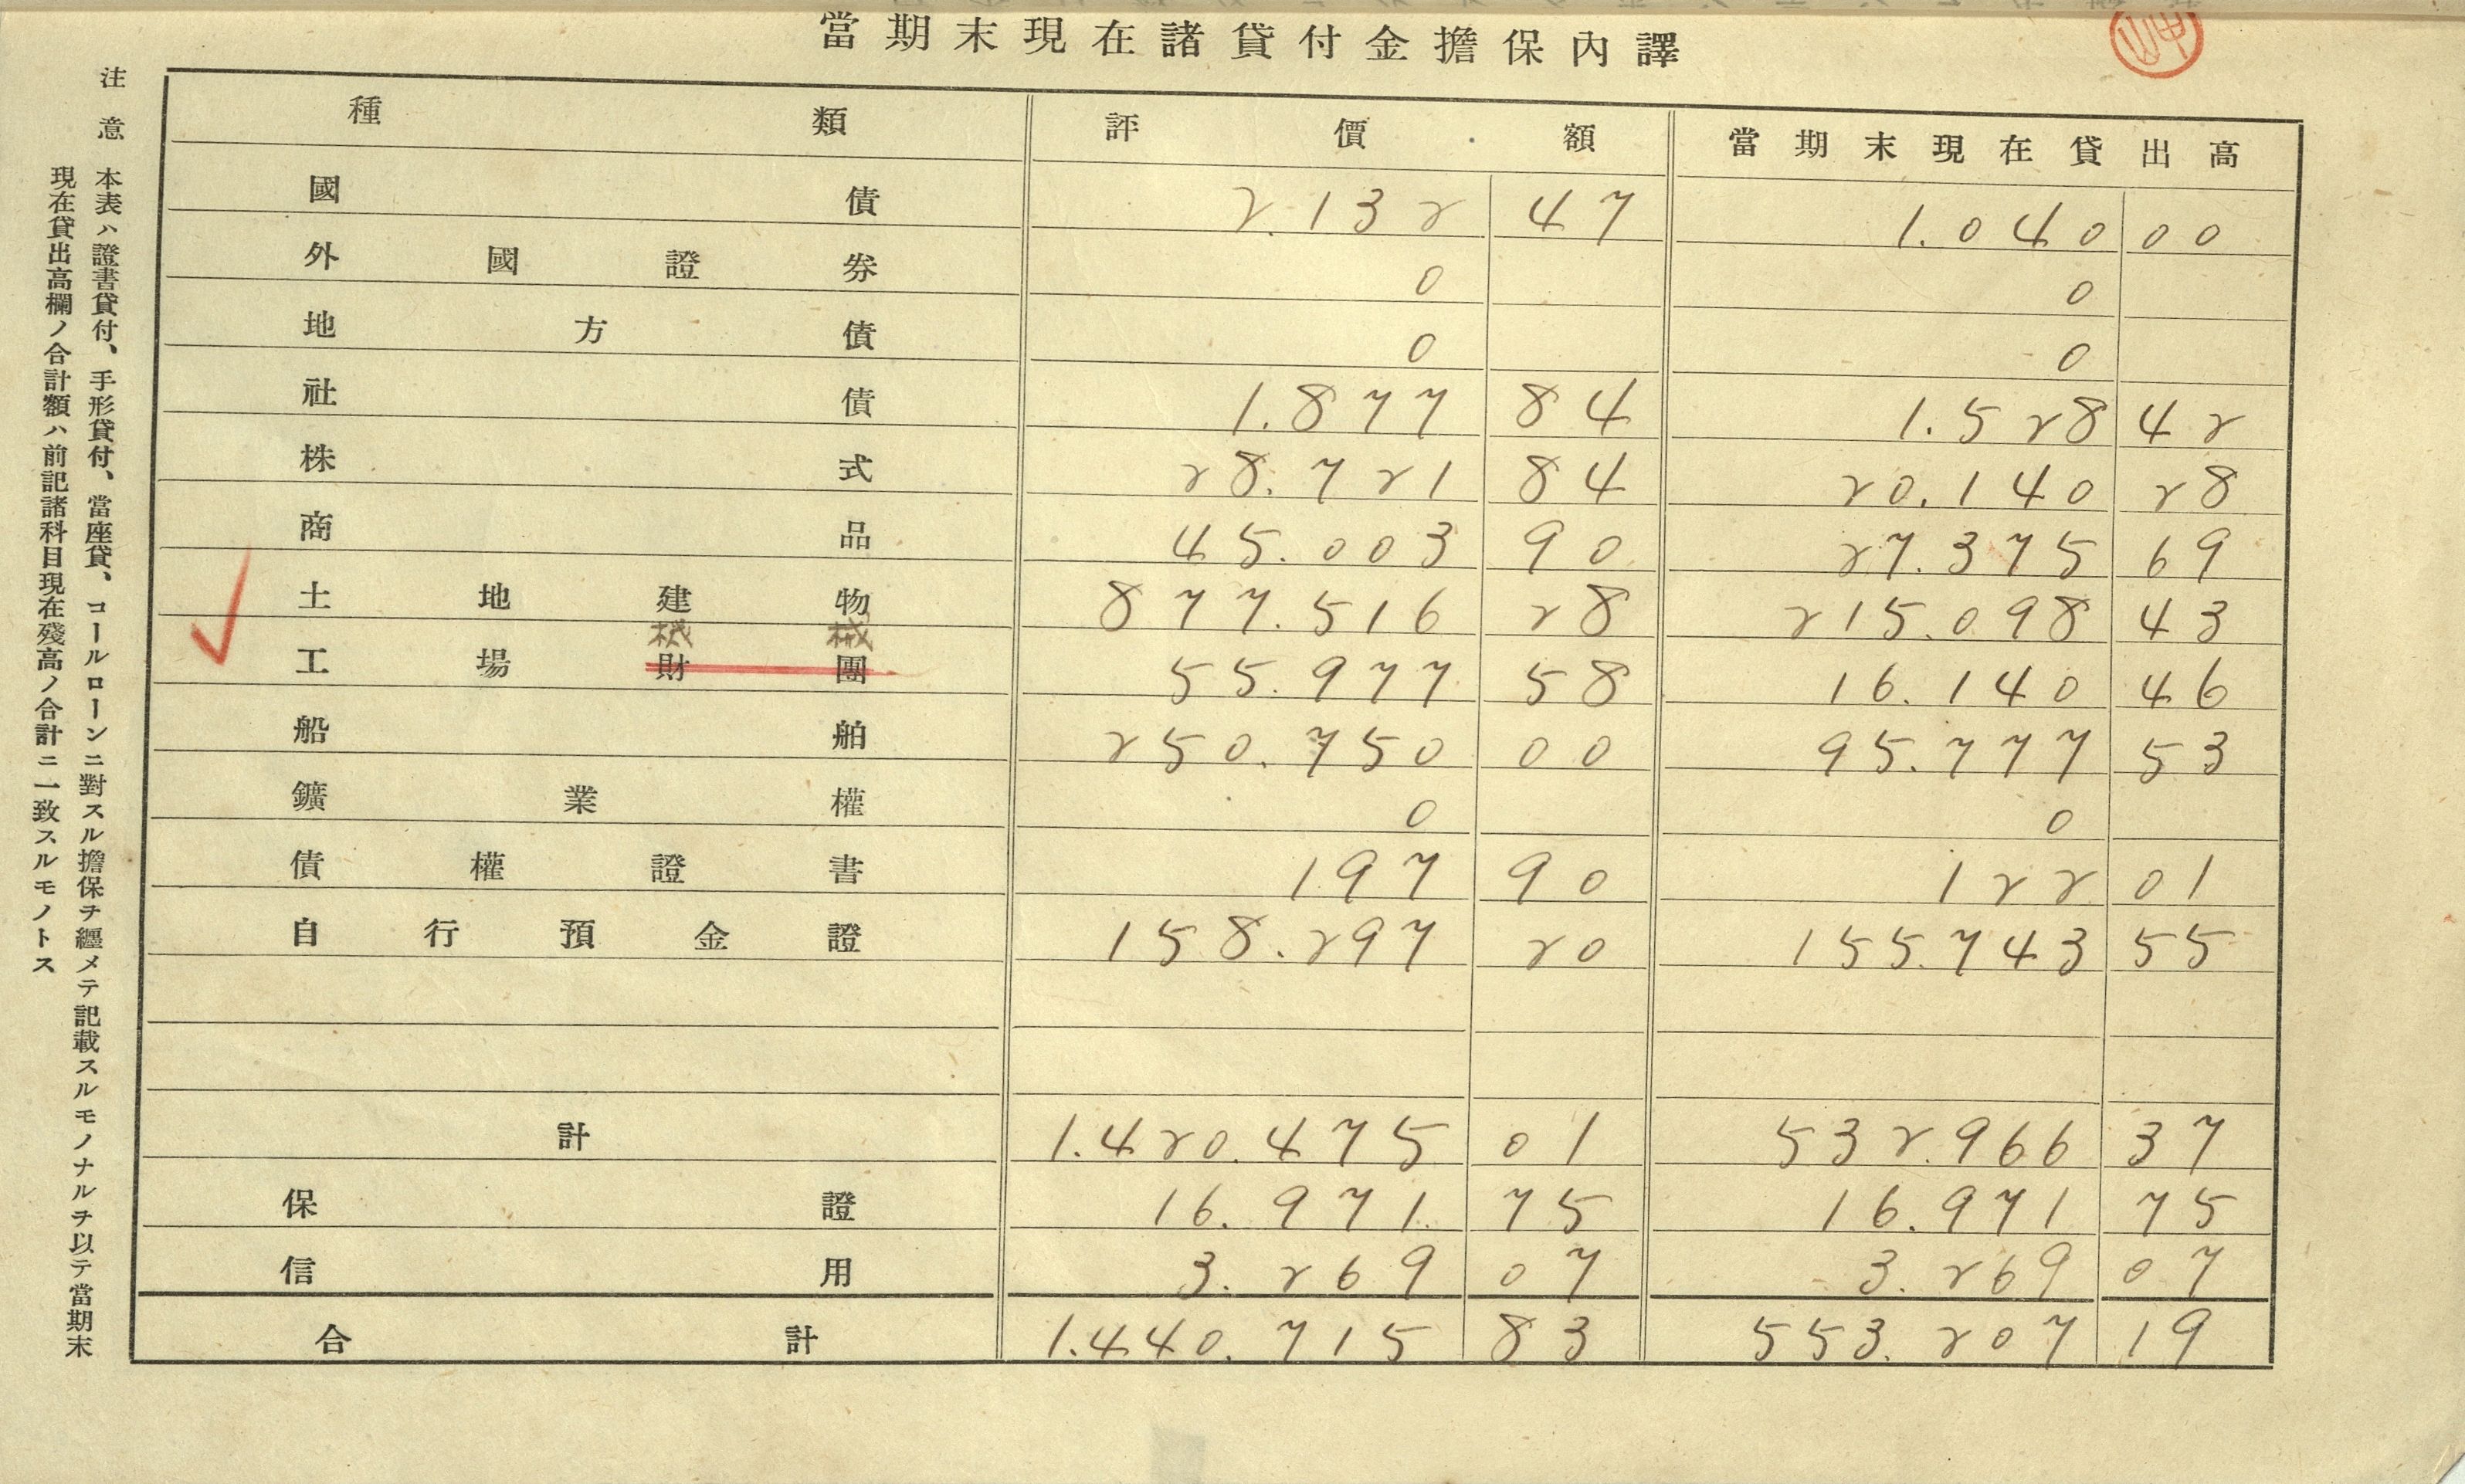 當期末現在諸貸付金擔保內譯
種類 評價額 當期末現在貸出高
國債 2.132 47 1.040 00
外國證券 0 0
地方債 0 0
社債 1.877 84 1.528 42
株式 28.721 84 20.140 28
商品 45.003 90 27.375 69
土地建物 877.516 28 215.098 43
機械
工場財團 55.977 58 16.140 46
船舶 250.750 00 95.777 53
鑛業權 0 0
債權證書 197 90 122 01
自行預金證 158.297 20 155.743 55
計 1.420.475 01 532.966 37
保證 16.971 75 16.971 75
信用 3.269 07 3.269 07
合計 1.440.715 83 553.207 19
注意 本表ハ證書貸付、手形貸付、當座貸、コールローンニ對スル擔保チ纒メテ記載スルモノナルチ以テ當期末
現在貸出高欄ノ合計額ハ前記諸科目現在殘高ノ合計ニ一致スルモノトス